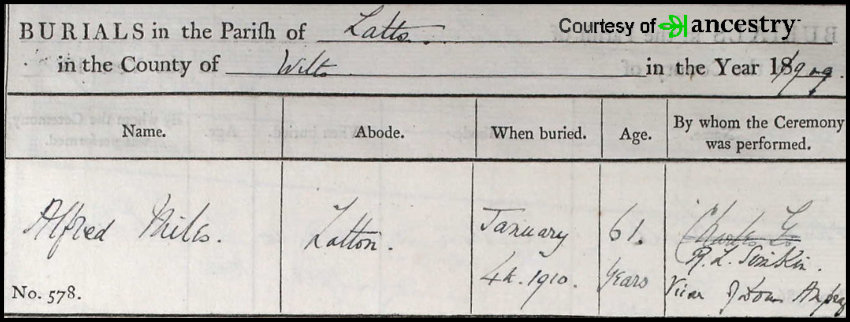 Courtesy of ancestry
BURIALS in the Parish of Latton
in the County of Wilts in the Year 1909
Name. Abode. When buried. Age. By whom the Ceremony was performed.
Alfred Miles. Latton. January 61.
4th. 1910. Years
R. L. Simkin.
No. 578. Vicar of Down Ampney